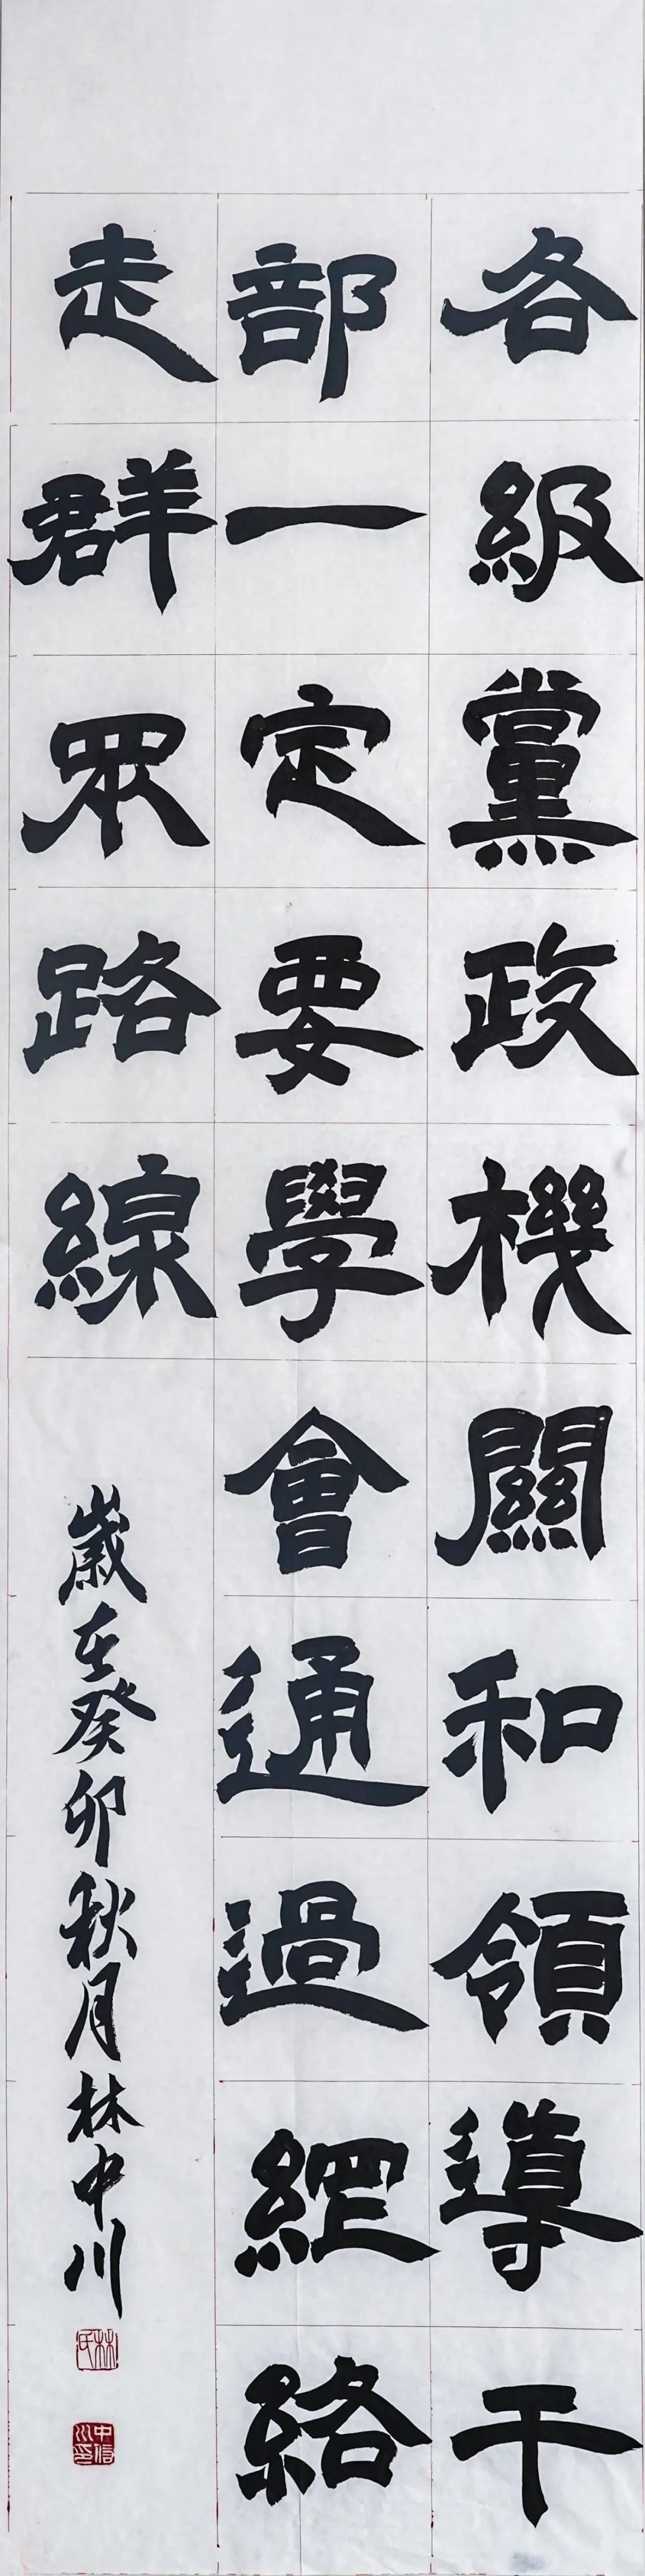 各級黨政機關和領導干
部一定要學會通過網絡
走群眾路線
歲在癸卯秋月林中川
林氏